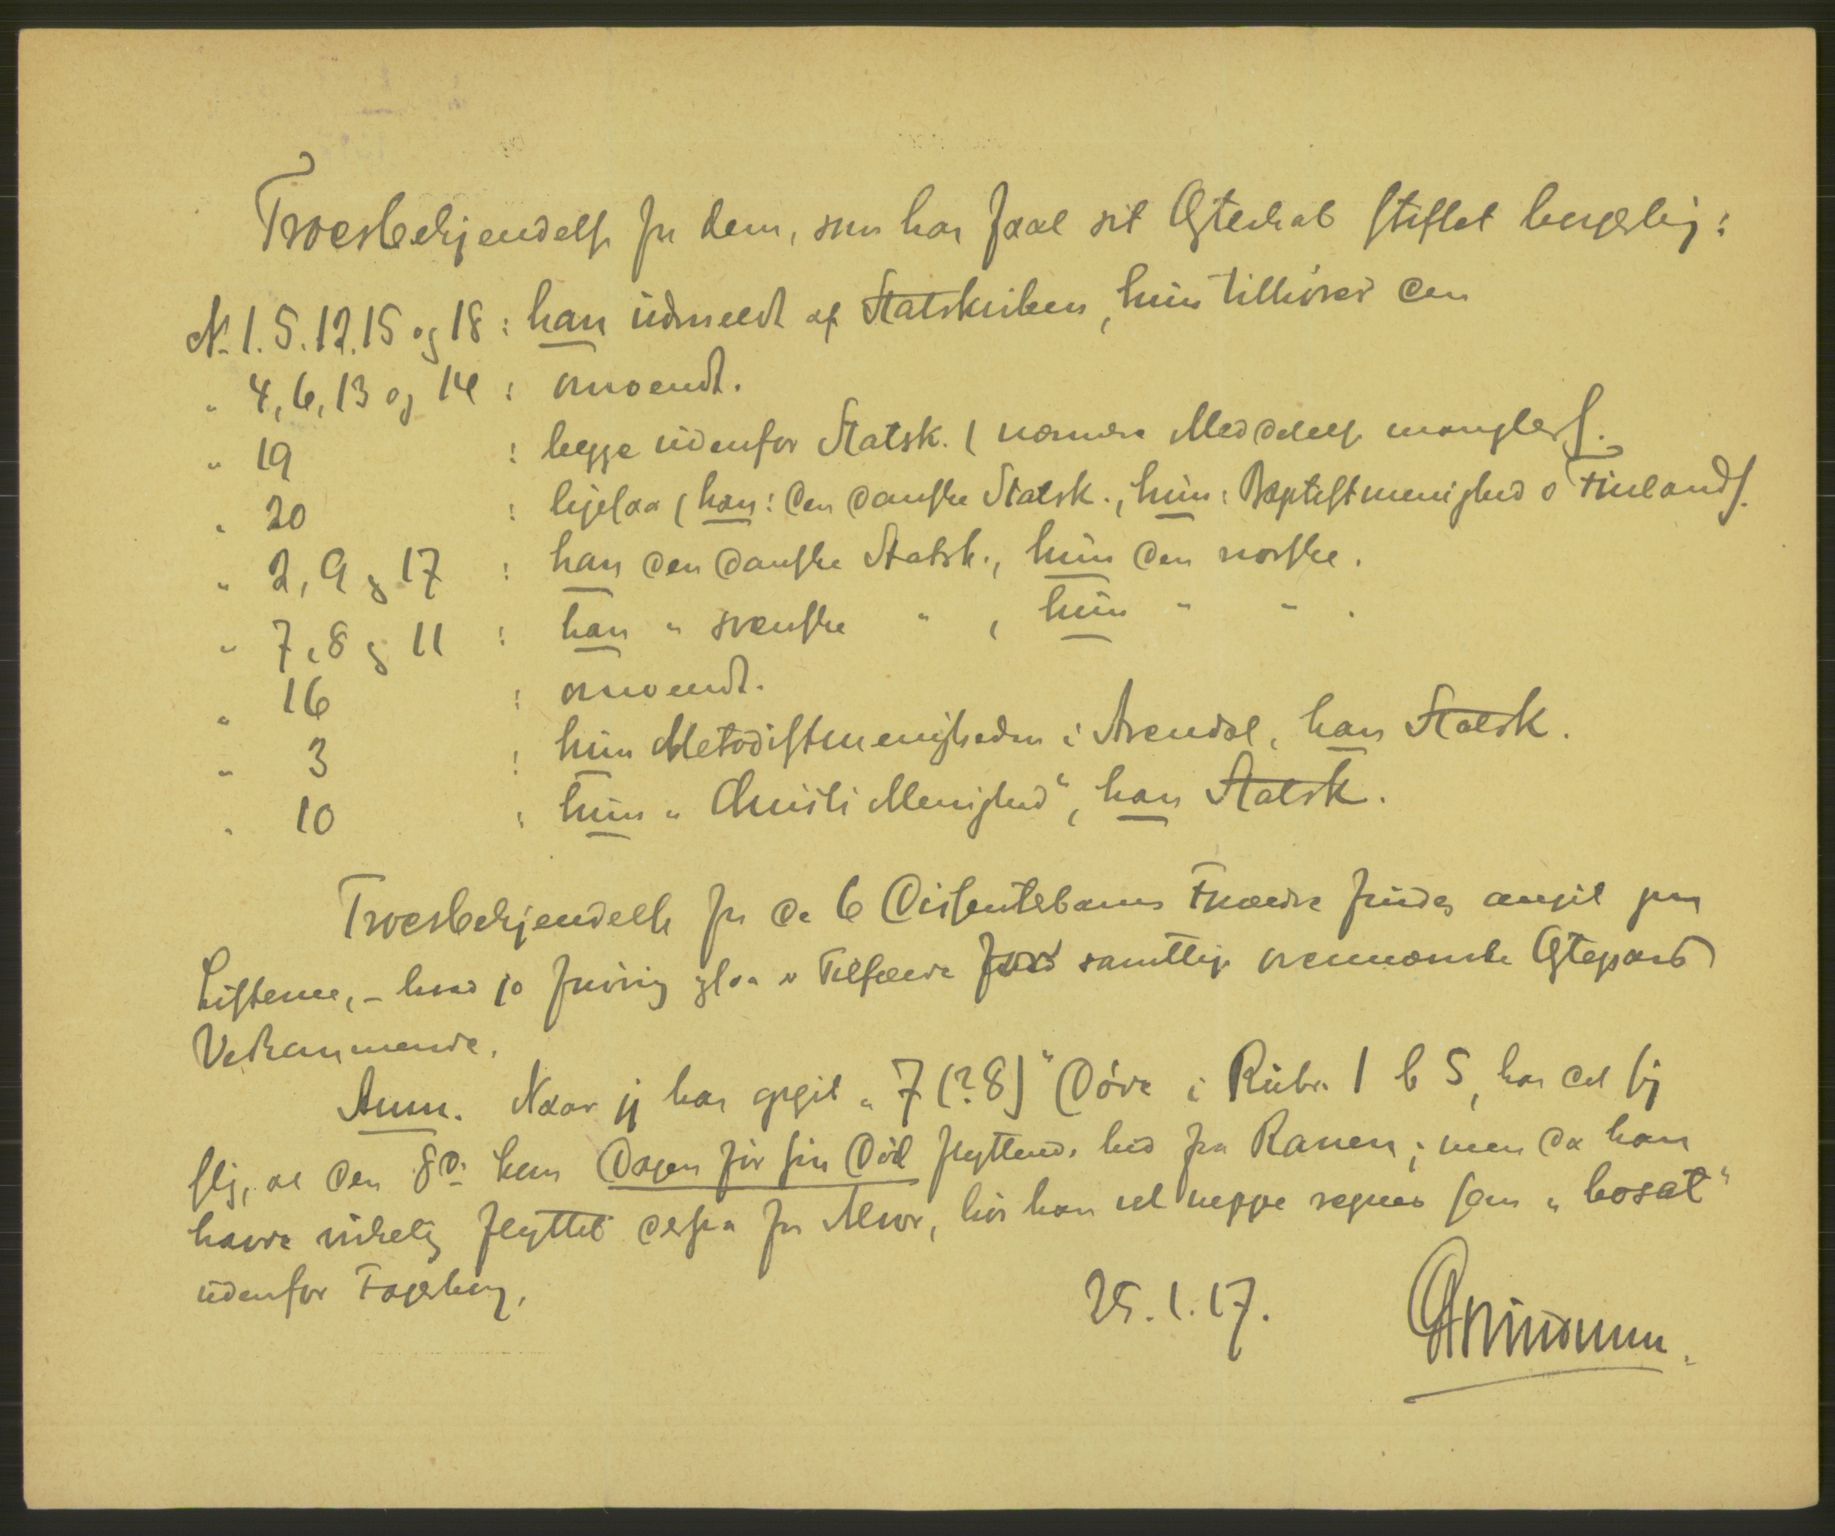 Troesbekjendelse for dem, som har faaet sit Ægteskab stiftet borgerlig:
N. 1. 5. 12. 15 og 18 : han udmeldt af Statskirken, hun tilhører den
" 4, 6, 13 og 14 : omvendt.
" 19 : begge udenfor Statsk. (nærmere Meddelelse mangler).
" 20 : ligesaa (han: den danske Statsk., hun: Baptistmenighed i Finland).
" 2, 9 og 17 : han den danske Statsk., hun den norske.
" 7, 8 og 11 : han " svenske " , hun " " .
" 16 : omvendt.
" 3 : hun Metodistmenigheden i Arendal, han Statsk.
" 10 : hun " Christi Menighed", han Statsk.
Troesbekjendelse for de 6 Dissenterbarns Forældre findes angit paa
Listerne, - hvad jo forøvrig ogsaa er Tilfælde samtlige ovennævnte Ægtepars
Vedkommende.
Anm. Naar jeg har opgit " 7 (? 8)" Døve i Rubr. 1 b 5, har det sig
slig, at den 8de kom Dagen før sin Død flyttende hid fra Ranen; men da han
havde virkelig flyttet derfra for Alvor, bør han vel neppe regnes som " bosat"
udenfor Fagerborg.
25. 1. 17.